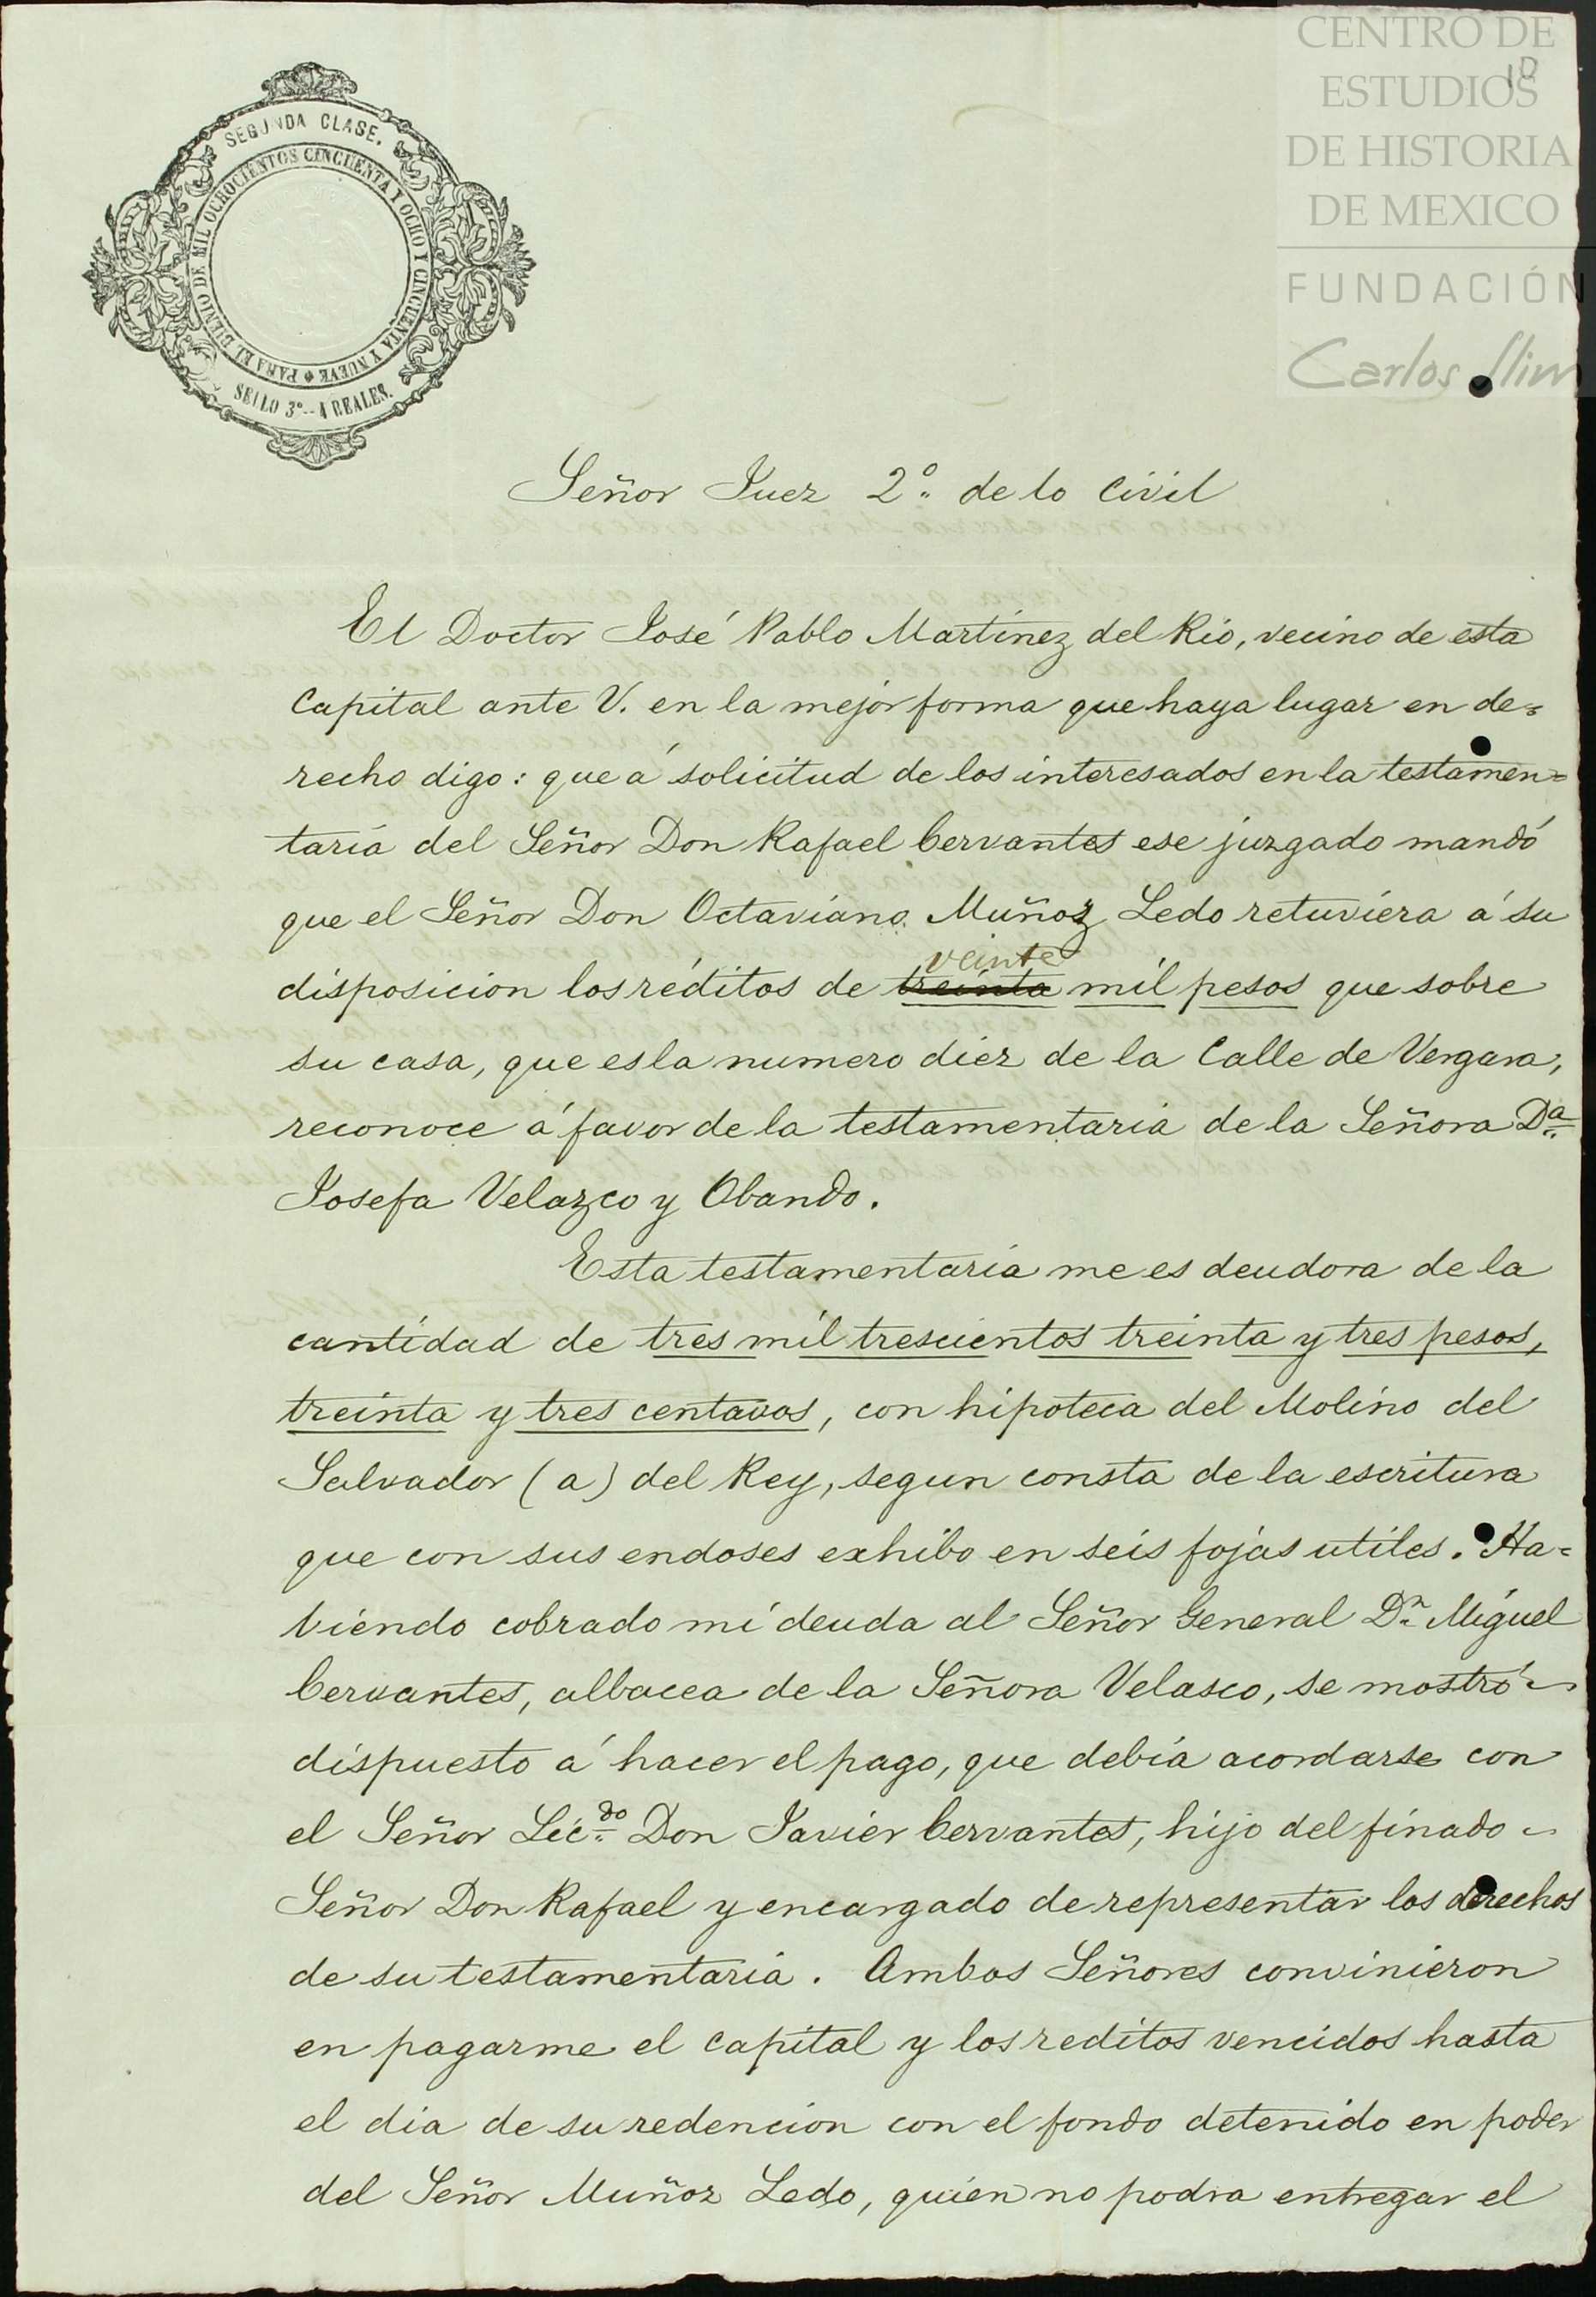 CENTRO DE
ESTUDIOS
DE HISTORIA
DE MEXICO
FUNDACIÓN
Carlos Slim
10
SEGUNDA CLASE.
PARA EL BIENIO DE MIL OCHOCIENTOS CINCUENTA Y OCHO Y CINCUENTA Y NUEVE
SELLO 3º--4 REALES.
Señor Juez 2º de lo Civil
El Doctor José Pablo Martinez del Rio, vecino de esta
Capital ante V. en la mejor forma que haya lugar en de=
recho digo: que á solicitud de los interesados en la testamen=
taría del Señor Don Rafael Cervantes ese juzgado mandó
que el Señor Don Octaviano Muñoz Ledo retuviera á su
veinte
disposicion los réditos de treinta mil pesos que sobre
su casa, que es la numero diez de la Calle de Vergara,
reconoce á favor de la testamentaría de la Señora Dª
Josefa Velazco y Obando.
Esta testamentaría me es deudora de la
cantidad de tres mil trescientos treinta y tres pesos,
treinta y tres centavos, con hipoteca del Molino del
Salvador (a) del Rey, segun consta de la escritura
que con sus endoses exhibo en seis fojas utiles. Ha=
biendo cobrado mi deuda al Señor General Dn Miguel
Cervantes, albacea de la Señora Velasco, se mostró
dispuesto á hacer el pago, que debía acordarse con
el Señor Licdo Don Javier Cervantes, hijo del finado
Señor Don Rafael y encargado de representar los derechos
de su testamentaría. Ambos Señores convinieron
en pagarme el Capital y los reditos vencidos hasta
el dia de su redencion con el fondo detenido en poder
del Señor Muñoz Ledo, quien no podra entregar el